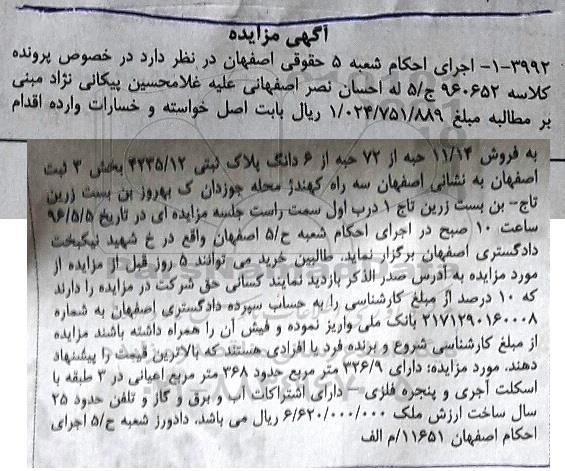 آگهی مزایده
۱-۳۹۹۲- اجرای احکام شعبه ۵ حقوقی اصفهان در نظر دارد در خصوص پرونده
کلاسه ۹۶۰۶۵۲ ج/۵ له احسان نصر اصفهانی علیه غلامحسین پیکانی نژاد مبنی
بر مطالبه مبلغ ۱/۰۲۴/۷۵۱/۸۸۹ ریال بابت اصل خواسته و خسارات وارده اقدام
به فروش ۱۱/۱۴ حبه از ۷۲ حبه از ۶ دانگ پلاک ثبتی ۴۲۳۵/۱۲ بخش ۳ ثبت
اصفهان به نشانی اصفهان سه راه کهندژ محله جوزدان ک بهروز بن بست زرین
تاج- بن بست زرین تاج ۱ درب اول سمت راست جلسه مزایده ای در تاریخ ۹۶/۵/۵
ساعت ۱۰ صبح در اجرای احکام شعبه ح/۵ اصفهان واقع در خ شهید نیکبخت
دادگستری اصفهان برگزار نماید. طالبین خرید می توانند ۵ روز قبل از مزایده از
مورد مزایده به آدرس صدر الذکر بازدید نمایند کسانی حق شرکت در مزایده را دارند
که ۱۰ درصد از مبلغ کارشناسی را به حساب سپرده دادگستری اصفهان به شماره
۲۱۷۱۲۹۰۱۶۰۰۰۸ بانک ملی واریز نموده و فیش آن را همراه داشته باشند مزایده
از مبلغ کارشناسی شروع و برنده فرد یا افرادی هستند که بالاترین قیمت را پیشنهاد
دهند. مورد مزایده: دارای ۳۲۶/۹ متر مربع حدود ۲۶۸ متر مربع اعیانی در ۳ طبقه با
اسکلت آجری و پنجره فلزی – دارای اشتراکات آب و برق و گاز و تلفن حدود ۲۵
سال ساخت ارزش ملک ۶/۶۲۰/۰۰۰/۰۰۰ ریال می باشد. دادورز شعبه ح/۵ اجرای
احکام اصفهان ۱۱۶۵۱/م الف